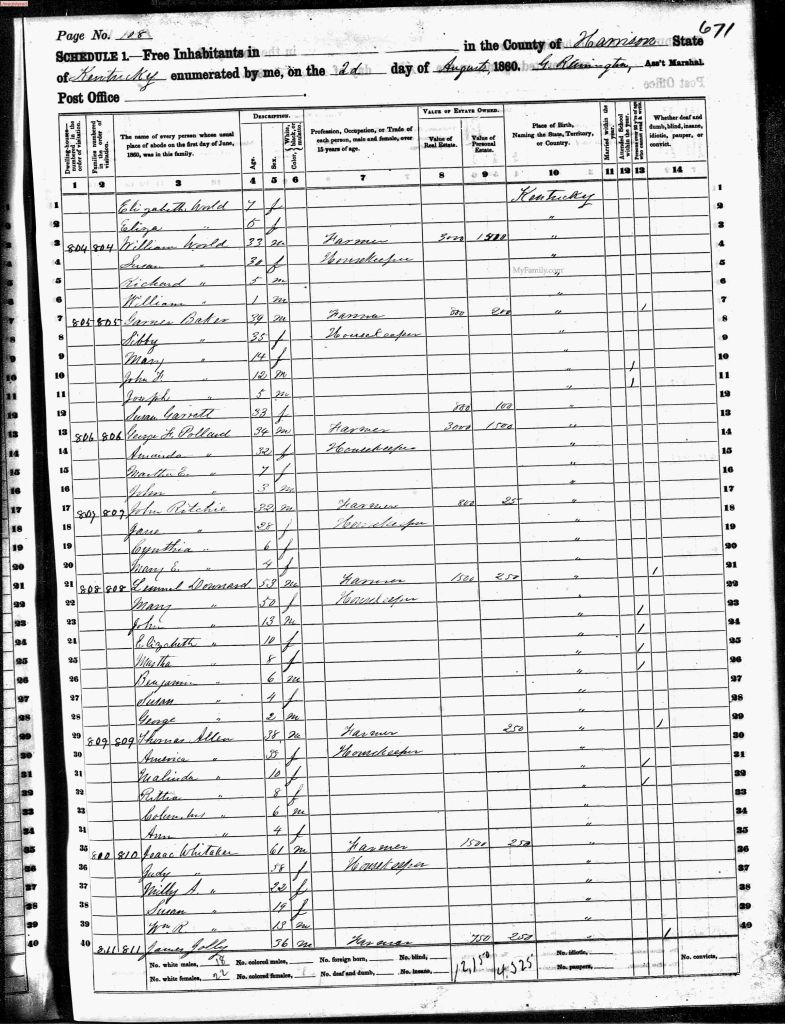 Page No. 108
671
SCHEDULE 1.—Free Inhabitants in in the County of Harrison State
of Kentucky enumerated by me, on the 2d day of August, 1860. Ass't Marshal.
Post Office
Dwelling-houses—numbered in the order of visitation.
Families numbered in the order of visitation.
The name of every person whose usual place of abode on the first day of June, 1860, was in this family.
DESCRIPTION.
Age.
Sex.
Color, White, black, or mulatto.
Profession, Occupation, or Trade of each person, male and female, over 15 years of age.
VALUE OF ESTATE OWNED.
Value of Real Estate.
Value of Personal Estate.
Place of Birth, Naming the State, Territory, or Country.
Married within the year.
Attended School within the year.
Persons over 20 y'rs of age who cannot read & write.
Whether deaf and dumb, blind, insane, idiotic, pauper, or convict.
1 2 3 4 5 6 7 8 9 10 11 12 13 14
1 Elizabeth World 7 f Kentucky 1
2 Eliza " 5 f " 2
3 804 804 William World 33 m Farmer 3000 " 3
4 Susan " 30 f Housekeeper " 4
5 Richard " 5 m 5
MyFamily.com
6 William " 1 m " 6
7 805 805 Garner Baker 34 m Farmer 800 200 " / 7
8 Sibby " 35 f Housekeeper " 8
9 Mary " 14 f " 9
10 John F. " 12 m " / 10
11 Joseph " 5 m " / 11
12 Susan Garrett 33 f 800 100 " 12
13 806 806 George F. Pollard 34 m Farmer 3000 1500 " 13
14 Amanda " 32 f Housekeeper " 14
15 Martha E. " 7 f " 15
16 John " 3 m " 16
17 807 807 John Ritchie 32 m Farmer 800 25 " 17
18 Jane " 28 f Housekeeper " 18
19 Cynthia " 6 f " 19
20 Mary E. " 4 f " 20
21 808 808 Lemuel Downard 53 m Farmer 1500 250 " / 21
22 Mary " 50 f Housekeeper " 22
23 John " 13 m " / 23
24 Elizabeth " 10 f " / 24
25 Martha " 8 f " / 25
26 Benjamin " 6 m " / 26
27 Susan " 4 f " 27
28 George " 2 m " 28
29 809 809 Thomas Allen 38 m Farmer 250 " / 29
30 America " 39 f Housekeeper " 30
31 Malinda " 10 f " / 31
32 " 8 f " / 32
33 Columbus " 6 m " 33
34 Ann " 4 f " 34
35 800 810 Isaac Whitaker 61 m Farmer 1500 250 " 35
36 Judy " 58 f Housekeeper " 36
37 Milly A " 22 f " 37
38 Susan " 19 f " 38
39 Wm R. " 13 m " 39
40 811 811 James Jolly 56 m Farmer 750 250 " / 40
No. white males, 18 No. colored males, No. foreign born, No. blind, 12,150 4,525 No. idiotic, No. convicts,
No. white females, 22 No. colored females, No. deaf and dumb, No. insane, No. paupers,